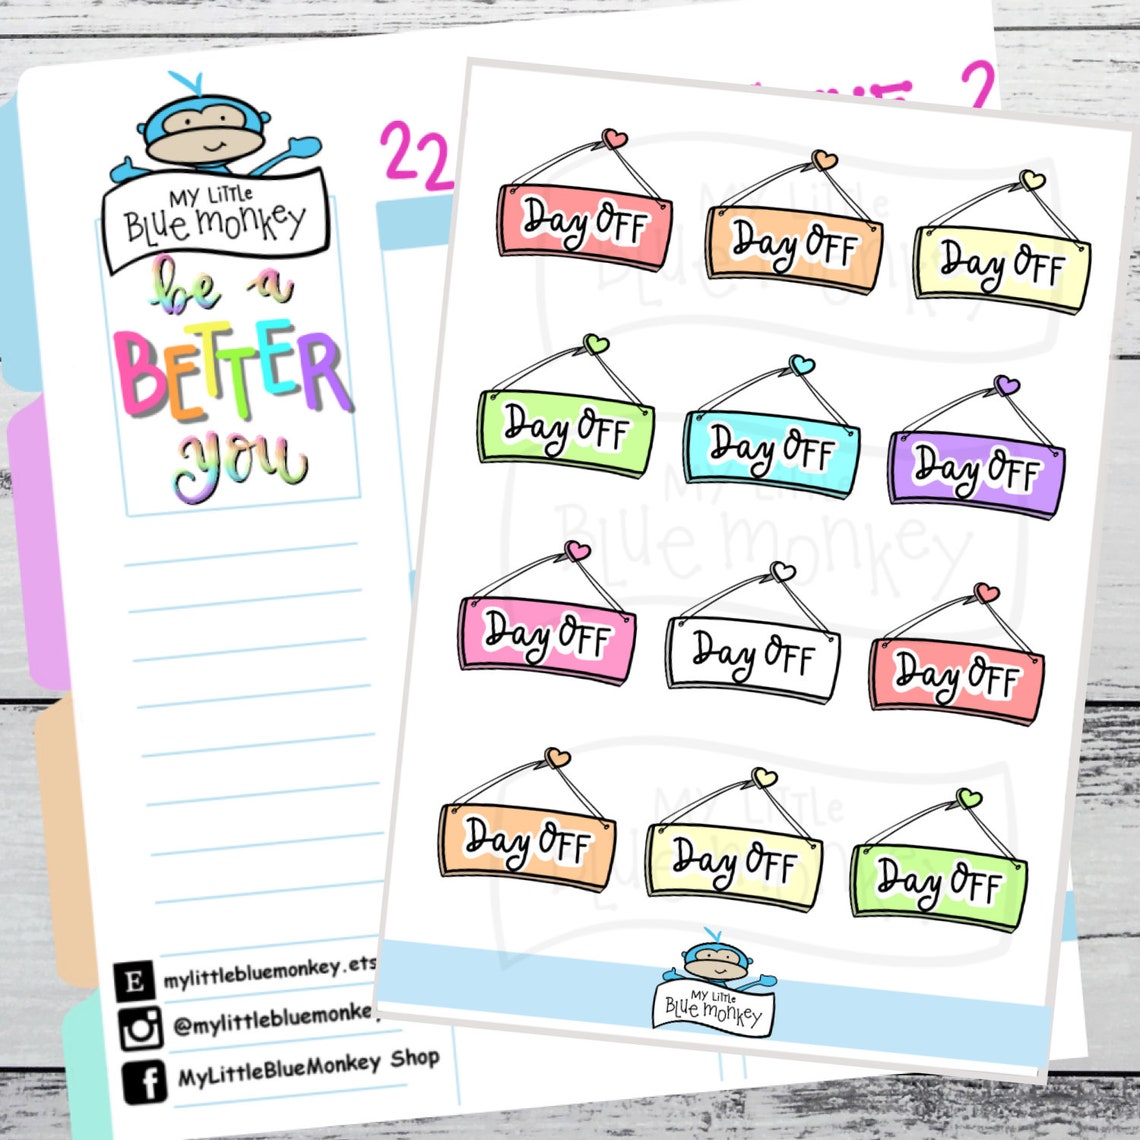 22
2
MY LITTLE
BLUE MONKEY
be a
BETTER
you
Day OFF
Day OFF
Day OFF
Day OFF
Day OFF
Day OFF
Day OFF
Day OFF
Day OFF
Day OFF
Day OFF
Day OFF
MY LITTLE
BLUE MONKEY
MY LITTLE
BLUE MONKEY
MY LITTLE
BLUE MONKEY
MY LITTLE
BLUE MONKEY
E mylittlebluemonkey.ets
@mylittlebluemonke
f MyLittleBlueMonkey Shop